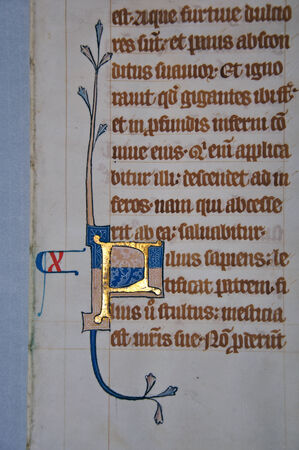 est. aque furtiue dulcio
res sūt: et panis abscon
ditus suauior. Et igno
rauit qď gigantes ibi sīt
et in ꝓfundis inferni cō
uiue eius. Qⁱ enī applica
bitur illi: descendet ad in
feros. nam qui abcesse
rit ab ea: saluabitur.
X
Filius sapiens: le
tificat patrem. fi
lius ů stultus: mesticia
est mr̄is sue. Nō ꝓderūt